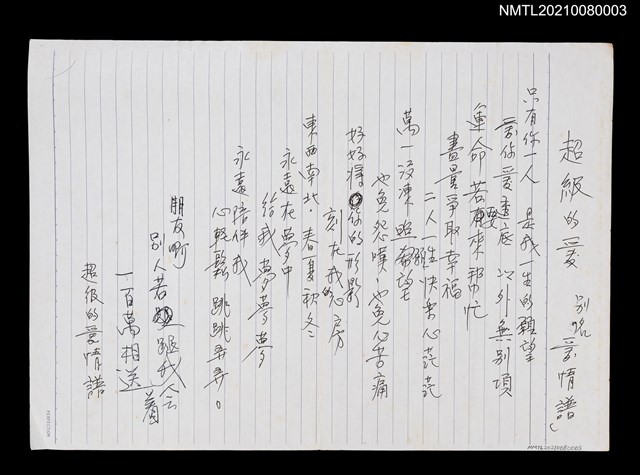 NMTL20210080003
超級的愛 別名愛情譜
只有你一人 是我一生的願望
愛你愛透底 以外無別項
運命若要來幫忙
盡量爭取幸福
二人一生快樂心茫茫
萬一沒凍照希望
也免怨嘆‧也免心苦痛
好好將你的形影
刻在我的心房
東西南北‧春夏秋冬
永遠在夢中
給我夢夢夢
永遠陪伴我
心輕鬆 跳跳弄弄。
朋友啊
別人若跟我会着
一百萬相送
超級的愛情譜
NMTL20210080003